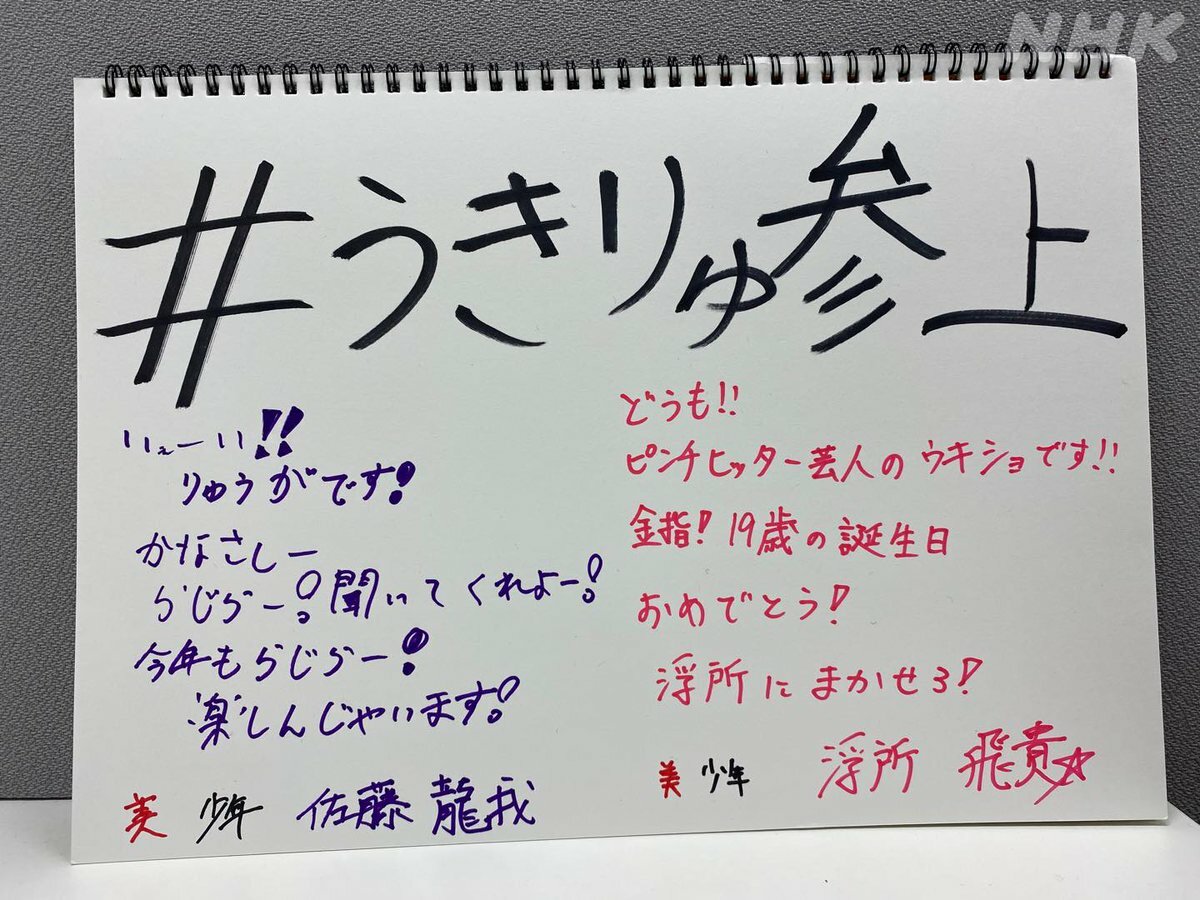 NHK
#うきりゅ参上
いぇーい!!
りゅうがです!
かなさしー
らじらー!聞いてくれよー!
今年もらじらー!
楽しんじゃいます!
美 少年 佐藤 龍我
どうも!!
ピンチヒッター芸人のウキショです!!
金指!19歳の誕生日
おめでとう!
浮所にまかせろ!
美 少年 浮所 飛貴☆